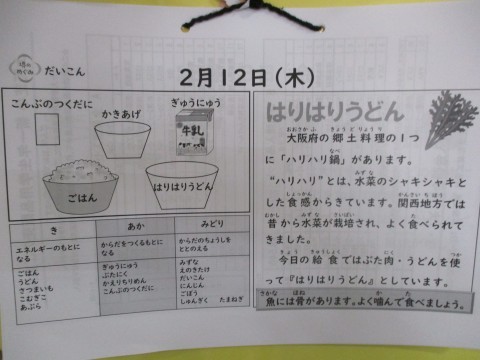 堺の
めぐみ
だいこん
2月12日(木)
こんぶのつくだに
かきあげ
ぎゅうにゅう
牛乳
ごはん
はりはりうどん
き
あか
みどり
エネルギーのもとに
なる
からだをつくるもとに
なる
からだのちょうしを
ととのえる
ごはん
うどん
さつまいも
こむぎこ
あぶら
ぎゅうにゅう
ぶたにく
かえりちりめん
こんぶのつくだに
みずな
えのきたけ
だいこん
にんじん
ごぼう
しゅんぎく たまねぎ
はりはりうどん
大阪府の郷土料理の1つ
に「ハリハリ鍋」があります。
“ハリハリ”とは、水菜のシャキシャキと
した食感からきています。関西地方では
昔から水菜が栽培され、よく食べられて
きました。
今日の給食ではぶた肉・うどんを使
って『はりはりうどん』としています。
魚には骨があります。よく噛んで食べましょう。